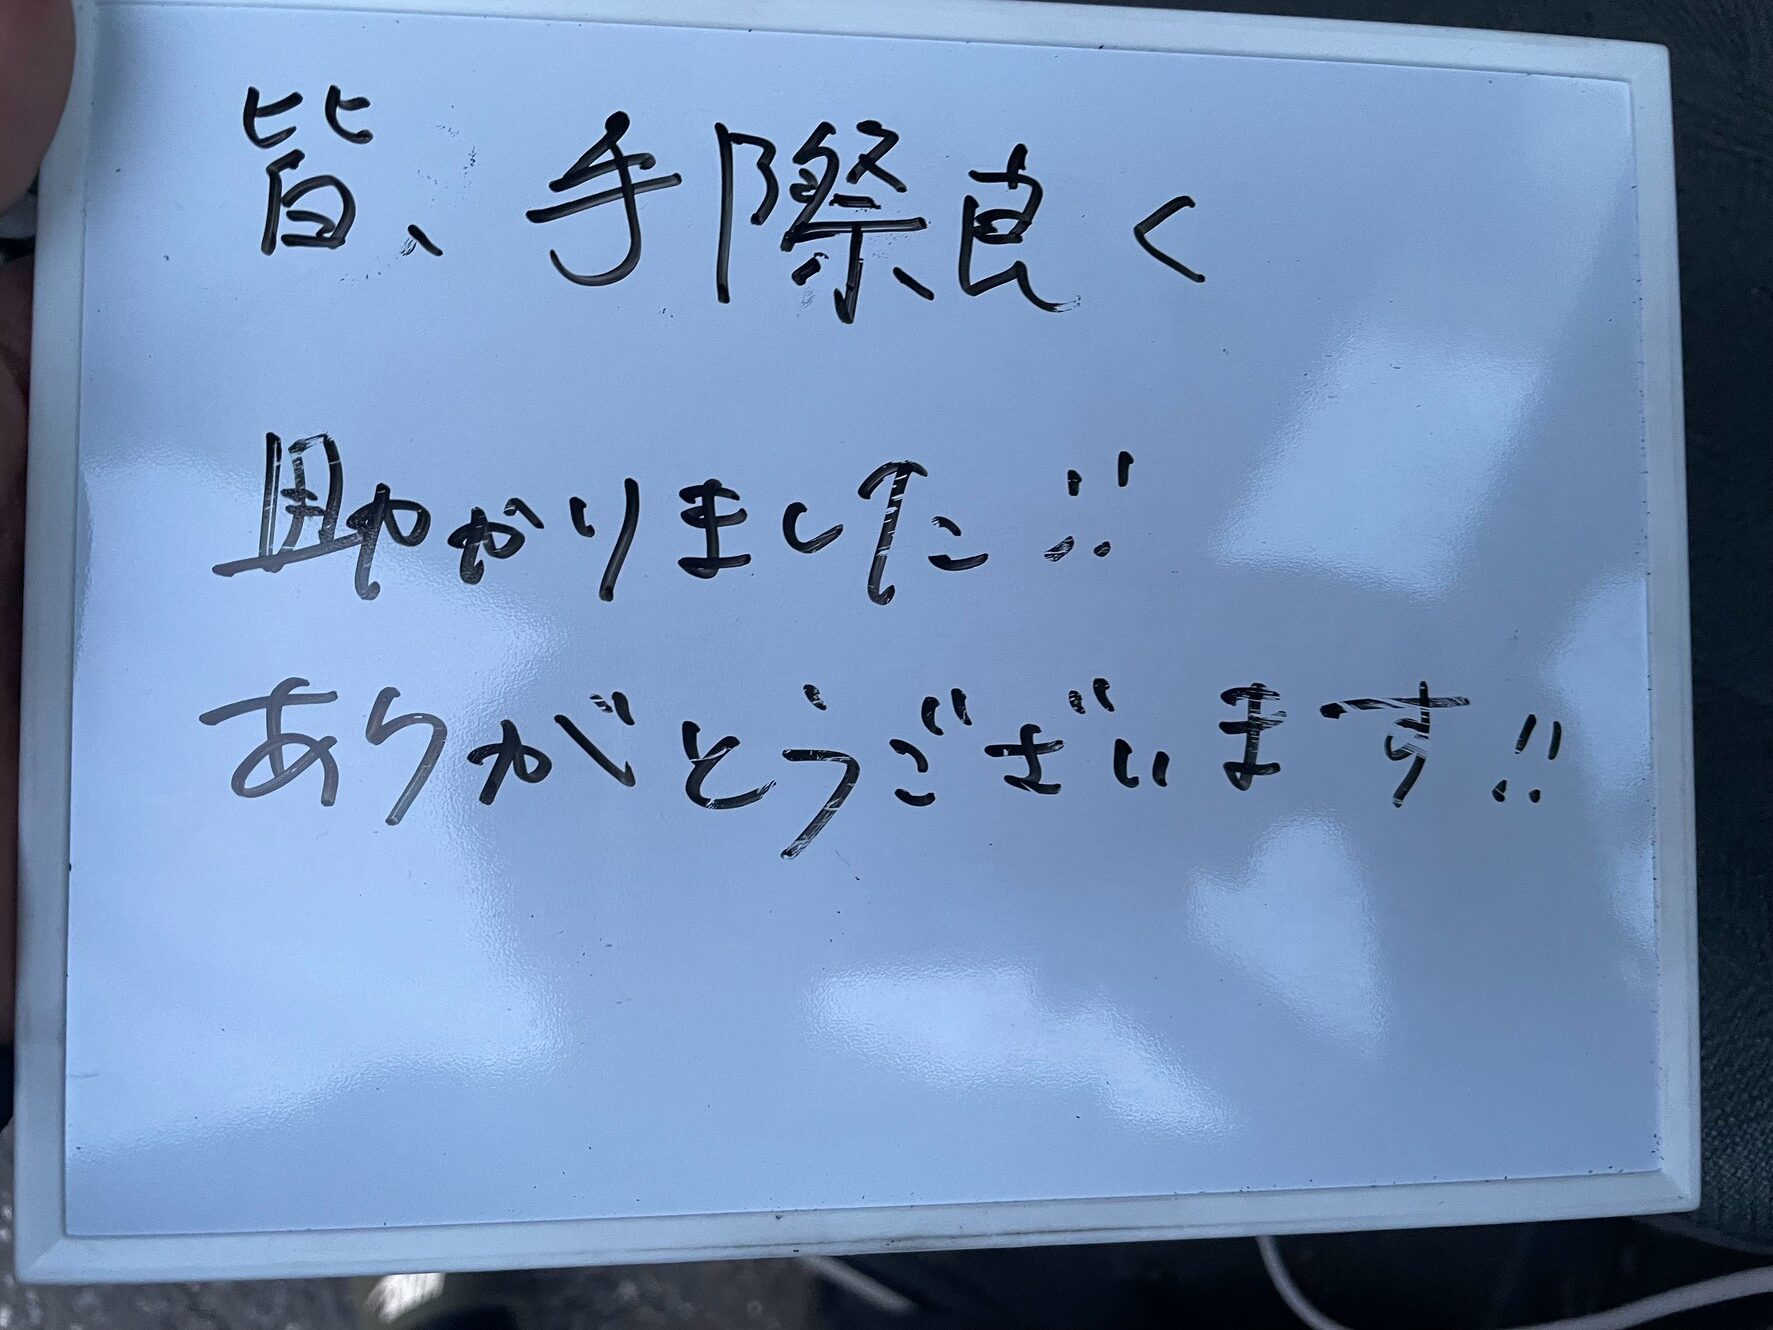 皆、手際良く
助かりました!!
ありがとうございます!!